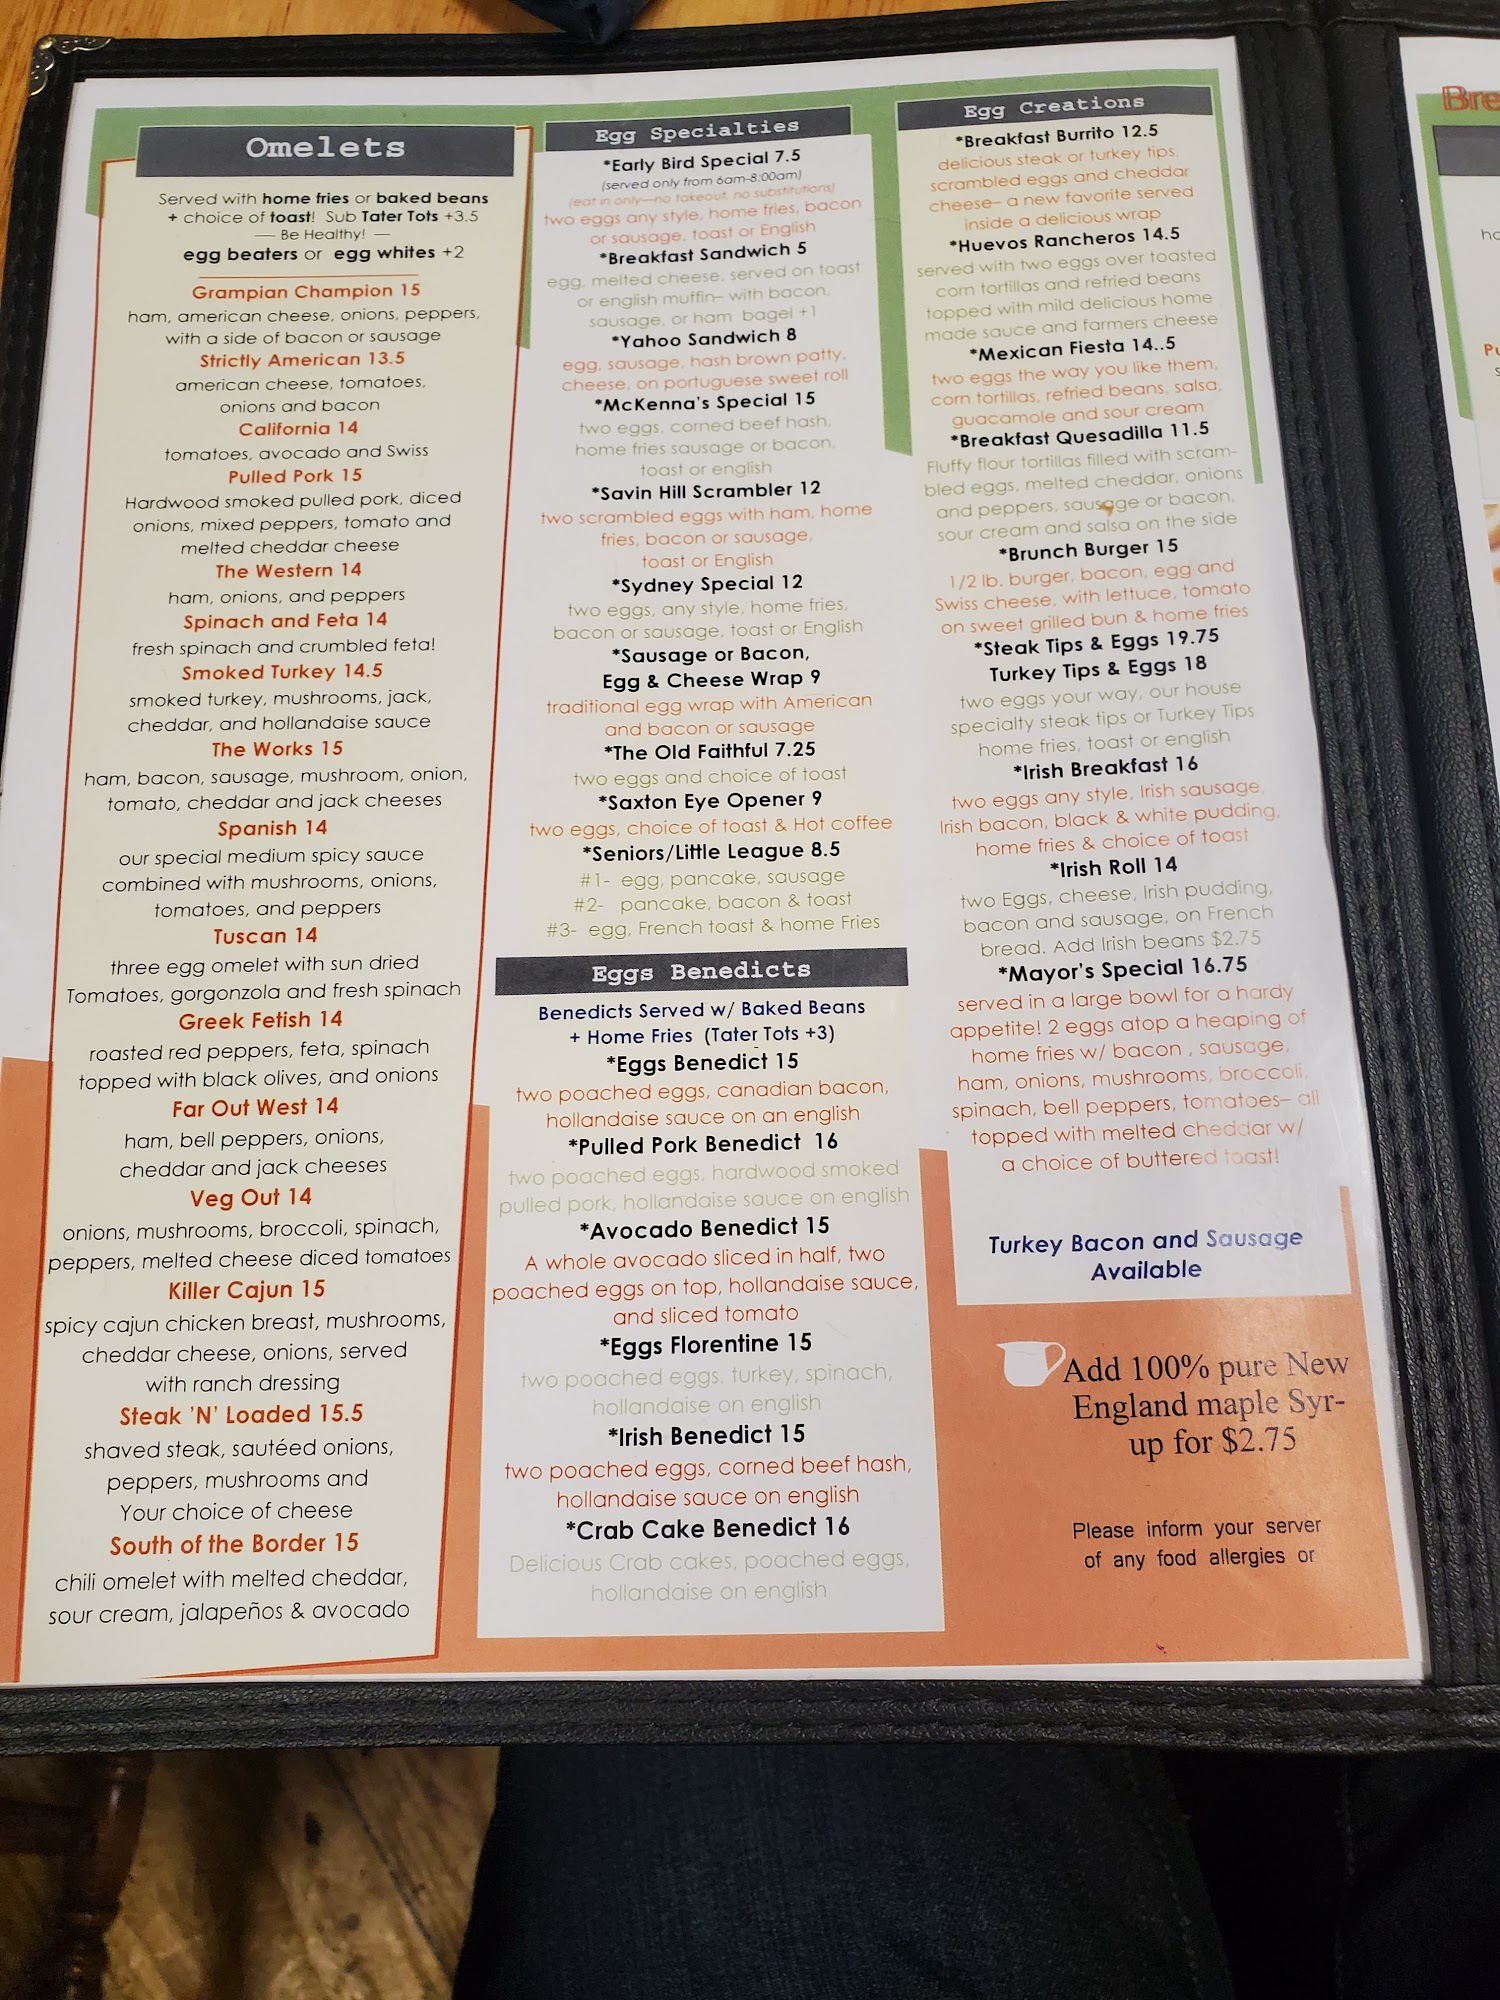 Omelets
Served with home fries or baked beans
+ choice of toast! Sub Tater Tots +3.5
— Be Healthy! —
egg beaters or egg whites +2
Grampian Champion 15
ham, american cheese, onions, peppers,
with a side of bacon or sausage
Strictly American 13.5
american cheese, tomatoes,
onions and bacon
California 14
tomatoes, avocado and Swiss
Pulled Pork 15
Hardwood smoked pulled pork, diced
onions, mixed peppers, tomato and
melted cheddar cheese
The Western 14
ham, onions, and peppers
Spinach and Feta 14
fresh spinach and crumbled feta!
Smoked Turkey 14.5
smoked turkey, mushrooms, jack,
cheddar, and hollandaise sauce
The Works 15
ham, bacon, sausage, mushroom, onion,
tomato, cheddar and jack cheeses
Spanish 14
our special medium spicy sauce
combined with mushrooms, onions,
tomatoes, and peppers
Tuscan 14
three egg omelet with sun dried
Tomatoes, gorgonzola and fresh spinach
Greek Fetish 14
roasted red peppers, feta, spinach
topped with black olives, and onions
Far Out West 14
ham, bell peppers, onions,
cheddar and jack cheeses
Veg Out 14
onions, mushrooms, broccoli, spinach,
peppers, melted cheese diced tomatoes
Killer Cajun 15
spicy cajun chicken breast, mushrooms,
cheddar cheese, onions, served
with ranch dressing
Steak 'N' Loaded 15.5
shaved steak, sautéed onions,
peppers, mushrooms and
Your choice of cheese
South of the Border 15
chili omelet with melted cheddar,
sour cream, jalapeños & avocado
Egg Specialties
*Early Bird Special 7.5
(served only from 6am-8:00am)
(eat in only—no takeout, no substitutions)
two eggs any style, home fries, bacon
or sausage, toast or English
*Breakfast Sandwich 5
egg, melted cheese, served on toast
or english muffin– with bacon,
sausage, or ham bagel +1
*Yahoo Sandwich 8
egg, sausage, hash brown patty,
cheese, on portuguese sweet roll
*McKenna's Special 15
two eggs, corned beef hash,
home fries sausage or bacon,
toast or english
*Savin Hill Scrambler 12
two scrambled eggs with ham, home
fries, bacon or sausage,
toast or English
*Sydney Special 12
two eggs, any style, home fries,
bacon or sausage, toast or English
*Sausage or Bacon,
Egg & Cheese Wrap 9
traditional egg wrap with American
and bacon or sausage
*The Old Faithful 7.25
two eggs and choice of toast
*Saxton Eye Opener 9
two eggs, choice of toast & Hot coffee
*Seniors/Little League 8.5
#1- egg, pancake, sausage
#2- pancake, bacon & toast
#3- egg, French toast & home Fries
Eggs Benedicts
Benedicts Served w/ Baked Beans
+ Home Fries (Tater Tots +3)
*Eggs Benedict 15
two poached eggs, canadian bacon,
hollandaise sauce on an english
*Pulled Pork Benedict 16
two poached eggs, hardwood smoked
pulled pork, hollandaise sauce on english
*Avocado Benedict 15
A whole avocado sliced in half, two
poached eggs on top, hollandaise sauce,
and sliced tomato
*Eggs Florentine 15
two poached eggs, turkey, spinach,
hollandaise on english
*Irish Benedict 15
two poached eggs, corned beef hash,
hollandaise sauce on english
*Crab Cake Benedict 16
Delicious Crab cakes, poached eggs,
hollandaise on english
Egg Creations
*Breakfast Burrito 12.5
delicious steak or turkey tips,
scrambled eggs and cheddar
cheese– a new favorite served
inside a delicious wrap
*Huevos Rancheros 14.5
served with two eggs over toasted
corn tortillas and refried beans
topped with mild delicious home
made sauce and farmers cheese
*Mexican Fiesta 14..5
two eggs the way you like them,
corn tortillas, refried beans, salsa,
guacamole and sour cream
*Breakfast Quesadilla 11.5
Fluffy flour tortillas filled with scram-
bled eggs, melted cheddar, onions
and peppers, sausage or bacon,
sour cream and salsa on the side
*Brunch Burger 15
1/2 lb. burger, bacon, egg and
Swiss cheese, with lettuce, tomato
on sweet grilled bun & home fries
*Steak Tips & Eggs 19.75
Turkey Tips & Eggs 18
two eggs your way, our house
specialty steak tips or Turkey Tips
home fries, toast or english
*Irish Breakfast 16
two eggs any style, Irish sausage,
Irish bacon, black & white pudding,
home fries & choice of toast
*Irish Roll 14
two Eggs, cheese, Irish pudding,
bacon and sausage, on French
bread. Add Irish beans $2.75
*Mayor's Special 16.75
served in a large bowl for a hardy
appetite! 2 eggs atop a heaping of
home fries w/ bacon , sausage,
ham, onions, mushrooms, broccoli,
spinach, bell peppers, tomatoes– all
topped with melted cheddar w/
a choice of buttered toast!
Turkey Bacon and Sausage
Available
Add 100% pure New
England maple Syr-
up for $2.75
Please inform your server
of any food allergies or
Bre